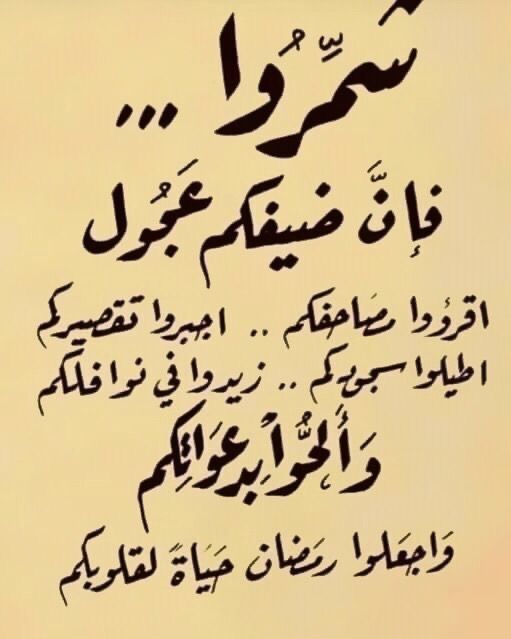 شَمِّرُوا ...
فإنَّ ضيفكم عَجُول
اقرؤوا مصَاحفكم .. اجبروا تقصيركم
اطيلوا سجودكم .. زيدوا في نوافلكم
وَأَلِحُّوا بِدعَوَاتِكم
وَاجعَلوا رمَضان حَيَاةً لقلوبكم